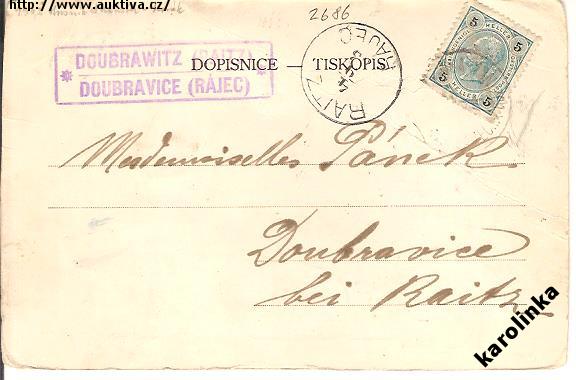 http://www.auktiva.cz/
2686
DOUBRAWITZ (RAITZ)
DOUBRAVICE (RÁJEC)
DOPISNICE — TISKOPIS
RAITZ
RAJEC
5 HELLER 5
5 HELLER 5
Mesdemoiselles Pánek
Doubravice
bei Raitz
karolinka